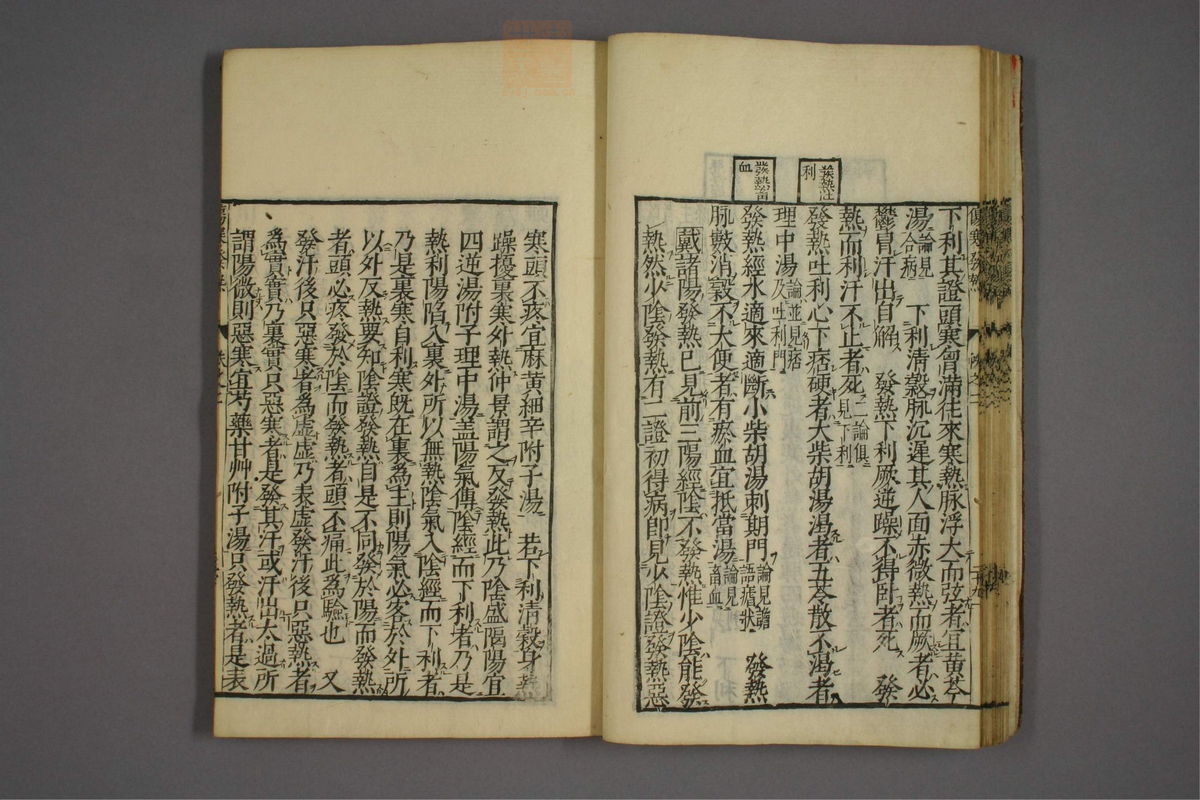 發熱註
利
發熱畜
血
下利其證頭寒胷滿往來寒熱脉浮大而弦者宜黃芩
湯論見合病　下利清穀脉沉遲其人面赤微熱而厥者必
鬱冒汗出自解　發熱下利厥逆躁不得卧者死　發
熱而利汗不止者死二論俱見下利
發熱吐利心下痞硬者大柴胡湯渴者五苓散不渴者
理中湯論並見痞及吐利門
發熱經水適來適斷小柴胡湯刺期門論見譫語瘖狀　發熱
脉數消穀不大便者有瘀血宜抵當湯論見畜血
戴諸陽發熱已見前三陽經陰不發熱惟少陰能發
熱然少陰發熱有二證初得病即見少陰證發熱惡
寒頭不疼宜麻黃細辛附子湯　若下利清穀身熱
躁擾裏寒外熱仲景謂之反發熱此乃陰盛隔陽宜
四逆湯附子理中湯盖陽氣傳陰經而下利者乃是
熱利陽陷入裏外所以無熱陰氣入陰經而下利者
乃是裏寒自利寒既在裏爲主則陽氣必客於外所
以外反熱要知陰證發熱自是不同發於陽而發熱
者頭必疼發於陰而發熱者頭不痛此爲驗也　又
發汗後只惡寒者爲虚虚乃表虚發汗後只惡熱者
爲實實乃裏實只惡寒者是發其汗或汗出太過所
謂陽微則惡寒宜芍藥甘艸附子湯只發熱者是表